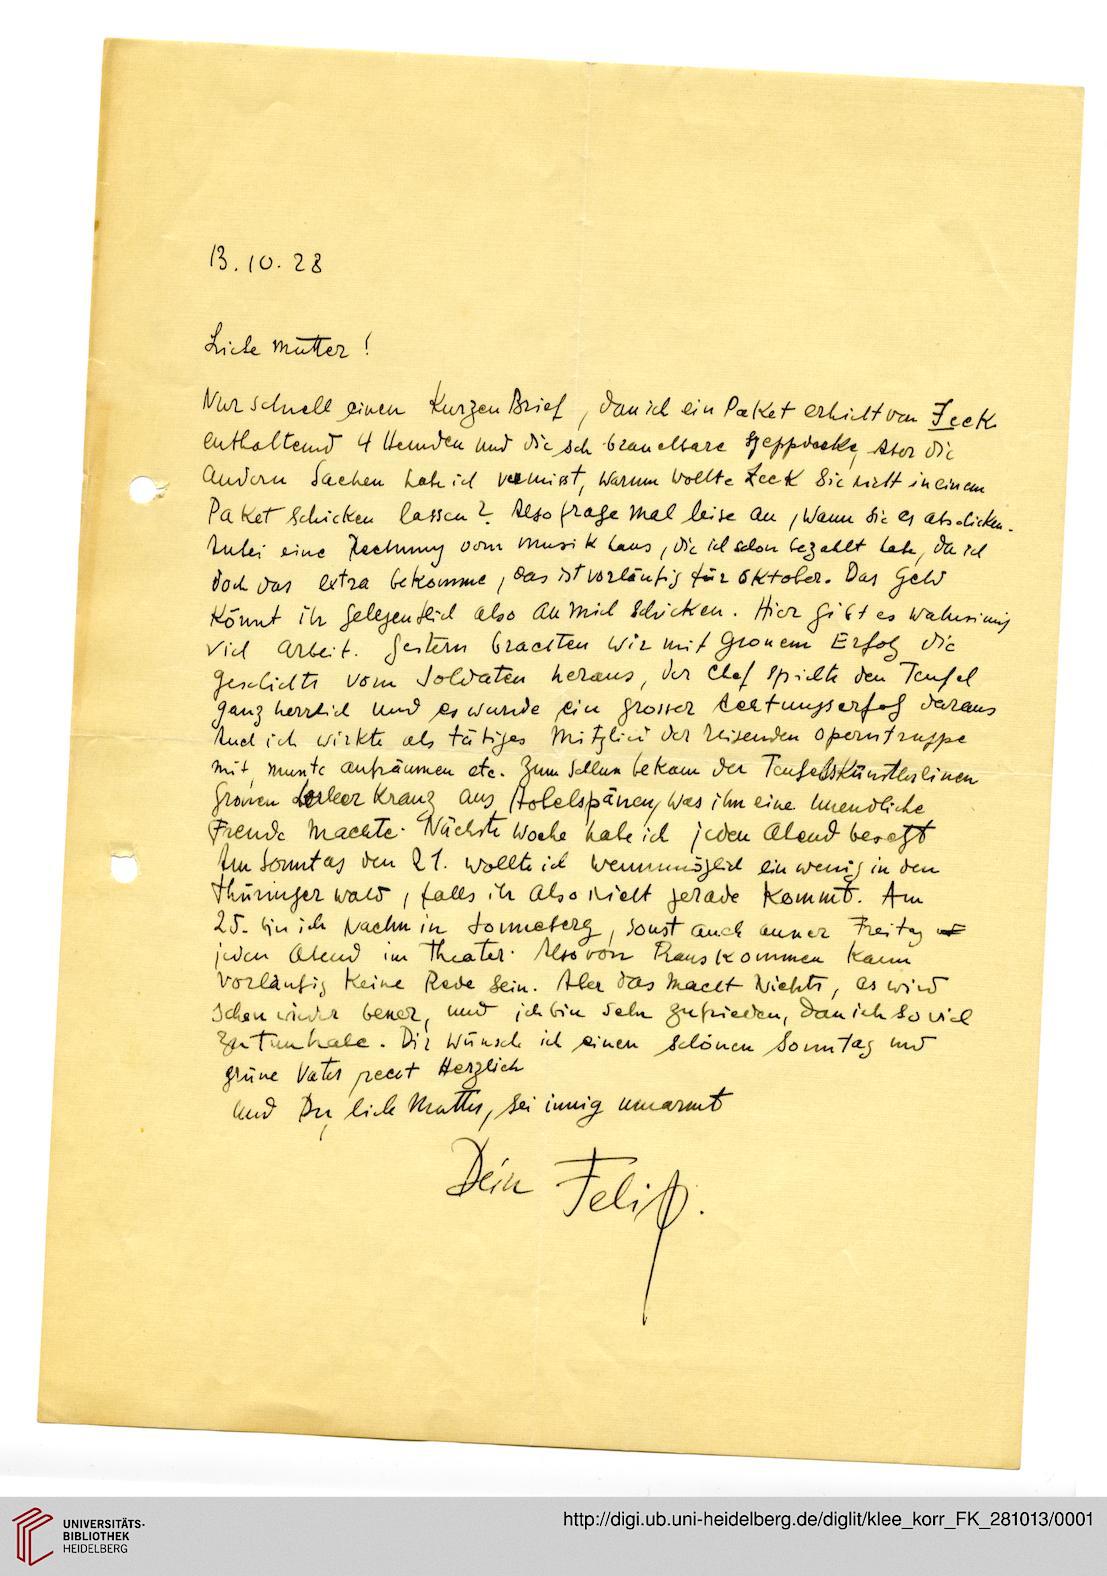 13.10.28
Liebe Mutter!
Nur schnell einen Kurzen Brief, dass ich ein Paket erhielt von Zeek
enthaltend 4 Hemden und die sehr brauchbare Steppdecke, aber die
andern Sachen habe ich vermisst, warum wollte Zeek Sie nicht in einem
Paket schicken lassen? Also frage mal leise an, wann Sie es abschicken.
Anbei eine Rechnung vom Musikhaus, die ich schon bezahlt habe, da ich
doch das extra bekomme, das ist vorläufig für Oktober. Das Geld
könnt ihr gelegentlich also an mich schicken. Hier gibt es wahnsinnig
viel Arbeit. Gestern brachten wir mit grossem Erfolg die
Geschichte vom Soldaten heraus, der Chef spielte den Teufel
ganz herrlich und es wurde ein grosser Achtungserfolg daraus
Auch ich wirkte als tätiges Mitglied der reisenden Operntruppe
mit, musste aufräumen etc. Zum Schluss bekam der Teufelskünstler einen
grossen Lorbeer Kranz aus Hobelspänen, was ihm eine unendliche
Freude machte. Nächste Woche habe ich jeden Abend besetzt
Am Sonntag den 21. wollte ich wennmöglich ein wenig in den
Thüringer wald, falls ihr also nicht gerade kommt. Am
25. bin ich Nachm in Sonneberg, sonst auch ausser Freitag
jeden Abend im Theater. Also von Rauskommen kann
vorläufig keine Rede sein. Aber das macht Nichts, es wird
schon wieder besser, und ich bin sehr zufrieden, dass ich so viel
zu tun habe. Dir wünsche ich einen schönen Sonntag und
grüsse Vater recht Herzlich
und Du, liebe Mutter, sei innig umarmt
Dein Felix.
UNIVERSITÄTS-
BIBLIOTHEK
HEIDELBERG
http://digi.ub.uni-heidelberg.de/diglit/klee_korr_FK_281013/0001